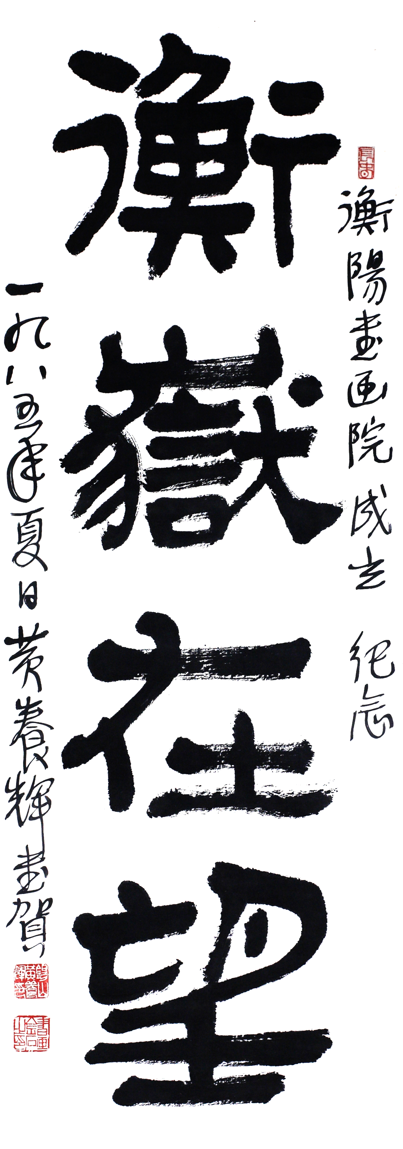 衡陽書画院成立 纪念
衡嶽在望
一九八五年夏日黄養輝書賀